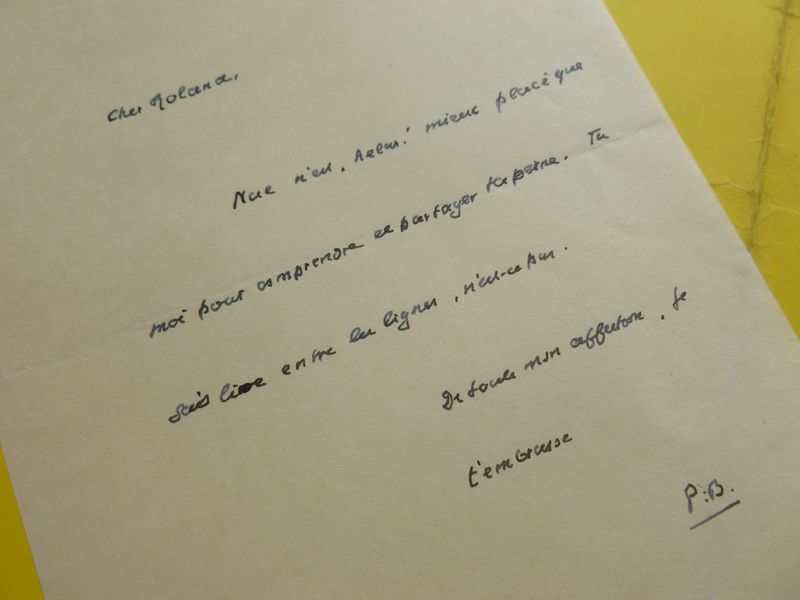 Cher Roland,
Nul n'est, hélas! mieux placé que
moi pour comprendre et partager ta peine. Tu
sais lire entre les lignes, n'est-ce pas.
De toute mon affection, je
t'embrasse
P.B.